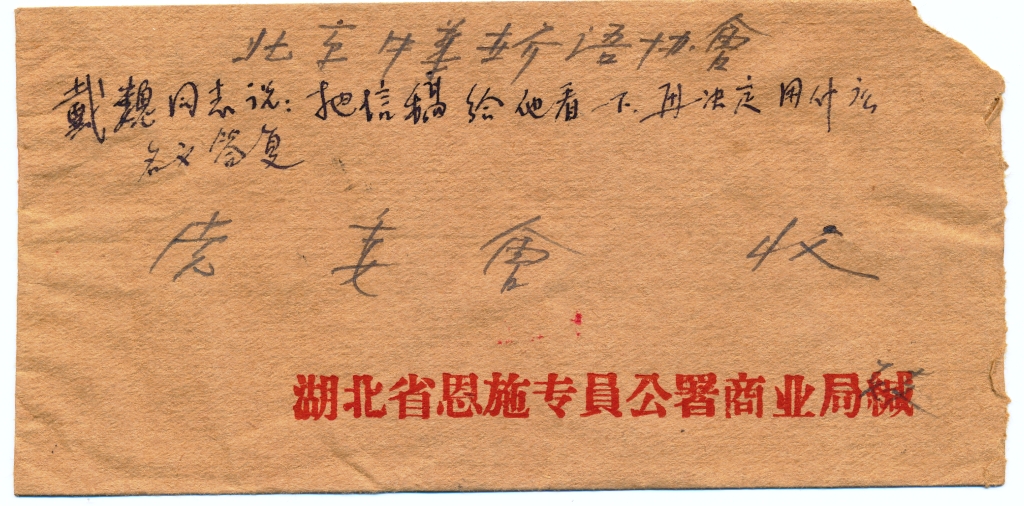 北京中華世介语协會
戴魏同志说：把信稿给他看一下，再决定用什么
名义答复
党委會 收
湖北省恩施专員公署商业局缄